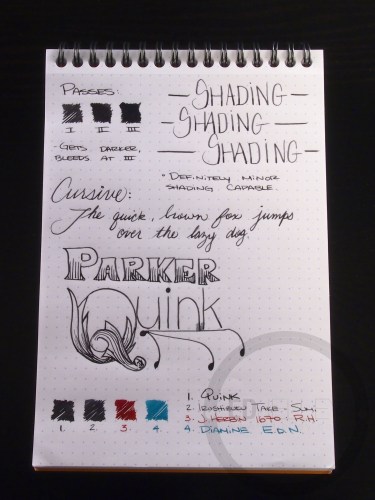 Passes:
I II III
- Gets darker,
bleeds at III
- Shading -
- Shading -
Shading -
* Definitely minor
shading capable.
Cursive:
The quick, brown fox jumps
over the lazy dog.
Parker
Quink
1. 2. 3. 4.
1. Quink
2. Iroshizuku Take-Sumi
3. J. Herbin 1670 - R.H.
4. Diamine E.D.N.